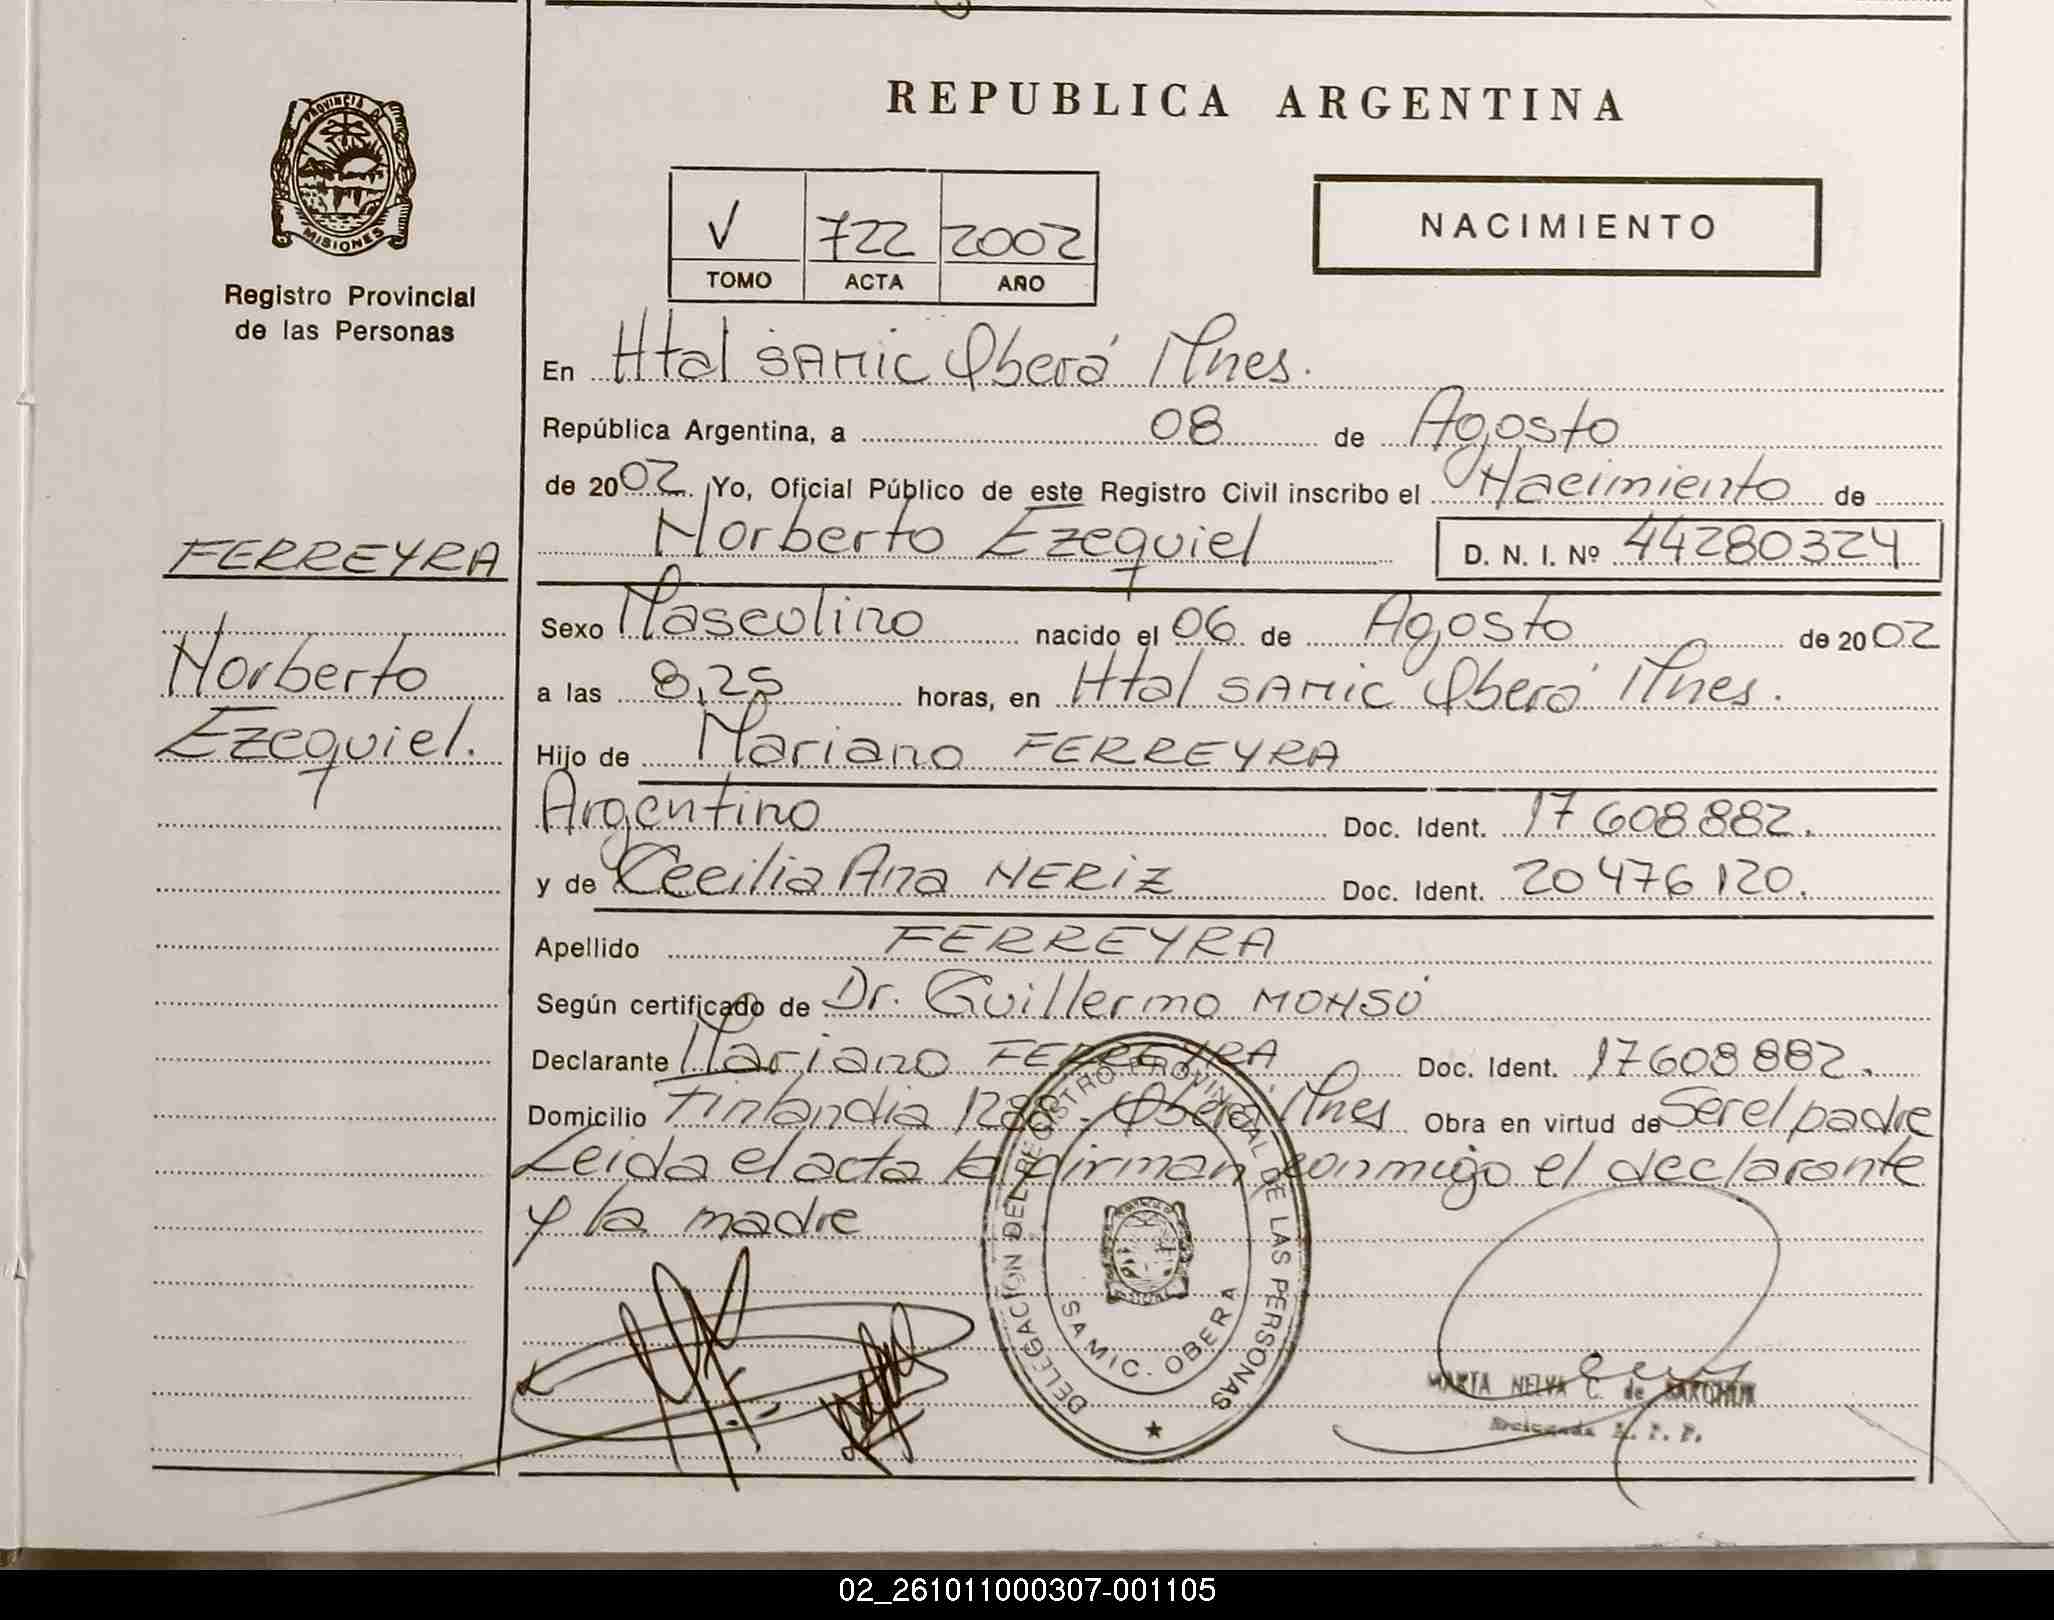 REPUBLICA ARGENTINA
PROVINCIA DE
MISIONES
Registro Provincial
de las Personas
V 722 2002
TOMO ACTA AÑO
NACIMIENTO
En Htal SAMIC Oberá Mnes.
República Argentina, a 08 de Agosto
de 2002. Yo, Oficial Público de este Registro Civil inscribo el Nacimiento de
Norberto Ezequiel D. N. I. Nº 44280324
FERREYRA
Norberto
Ezequiel.
Sexo Masculino nacido el 06 de Agosto de 2002
a las 8,25 horas, en Htal SAMIC Oberá Mnes.
Hijo de Mariano FERREYRA
Argentino Doc. Ident. 17608882.
y de Cecilia Ana NERIZ Doc. Ident. 20476120.
Apellido FERREYRA
Según certificado de Dr. Guillermo MONSÓ
Declarante Mariano FERREYRA Doc. Ident. 17608882.
Domicilio Finlandia 1288 - Oberá, Mnes Obra en virtud de Ser el padre
Leida el acta la firman conmigo el declarante
y la madre
DELEGACION DEL REGISTRO PROVINCIAL DE LAS PERSONAS
SAMIC. OBERA
MARTA NELVA C. de
02_261011000307-001105